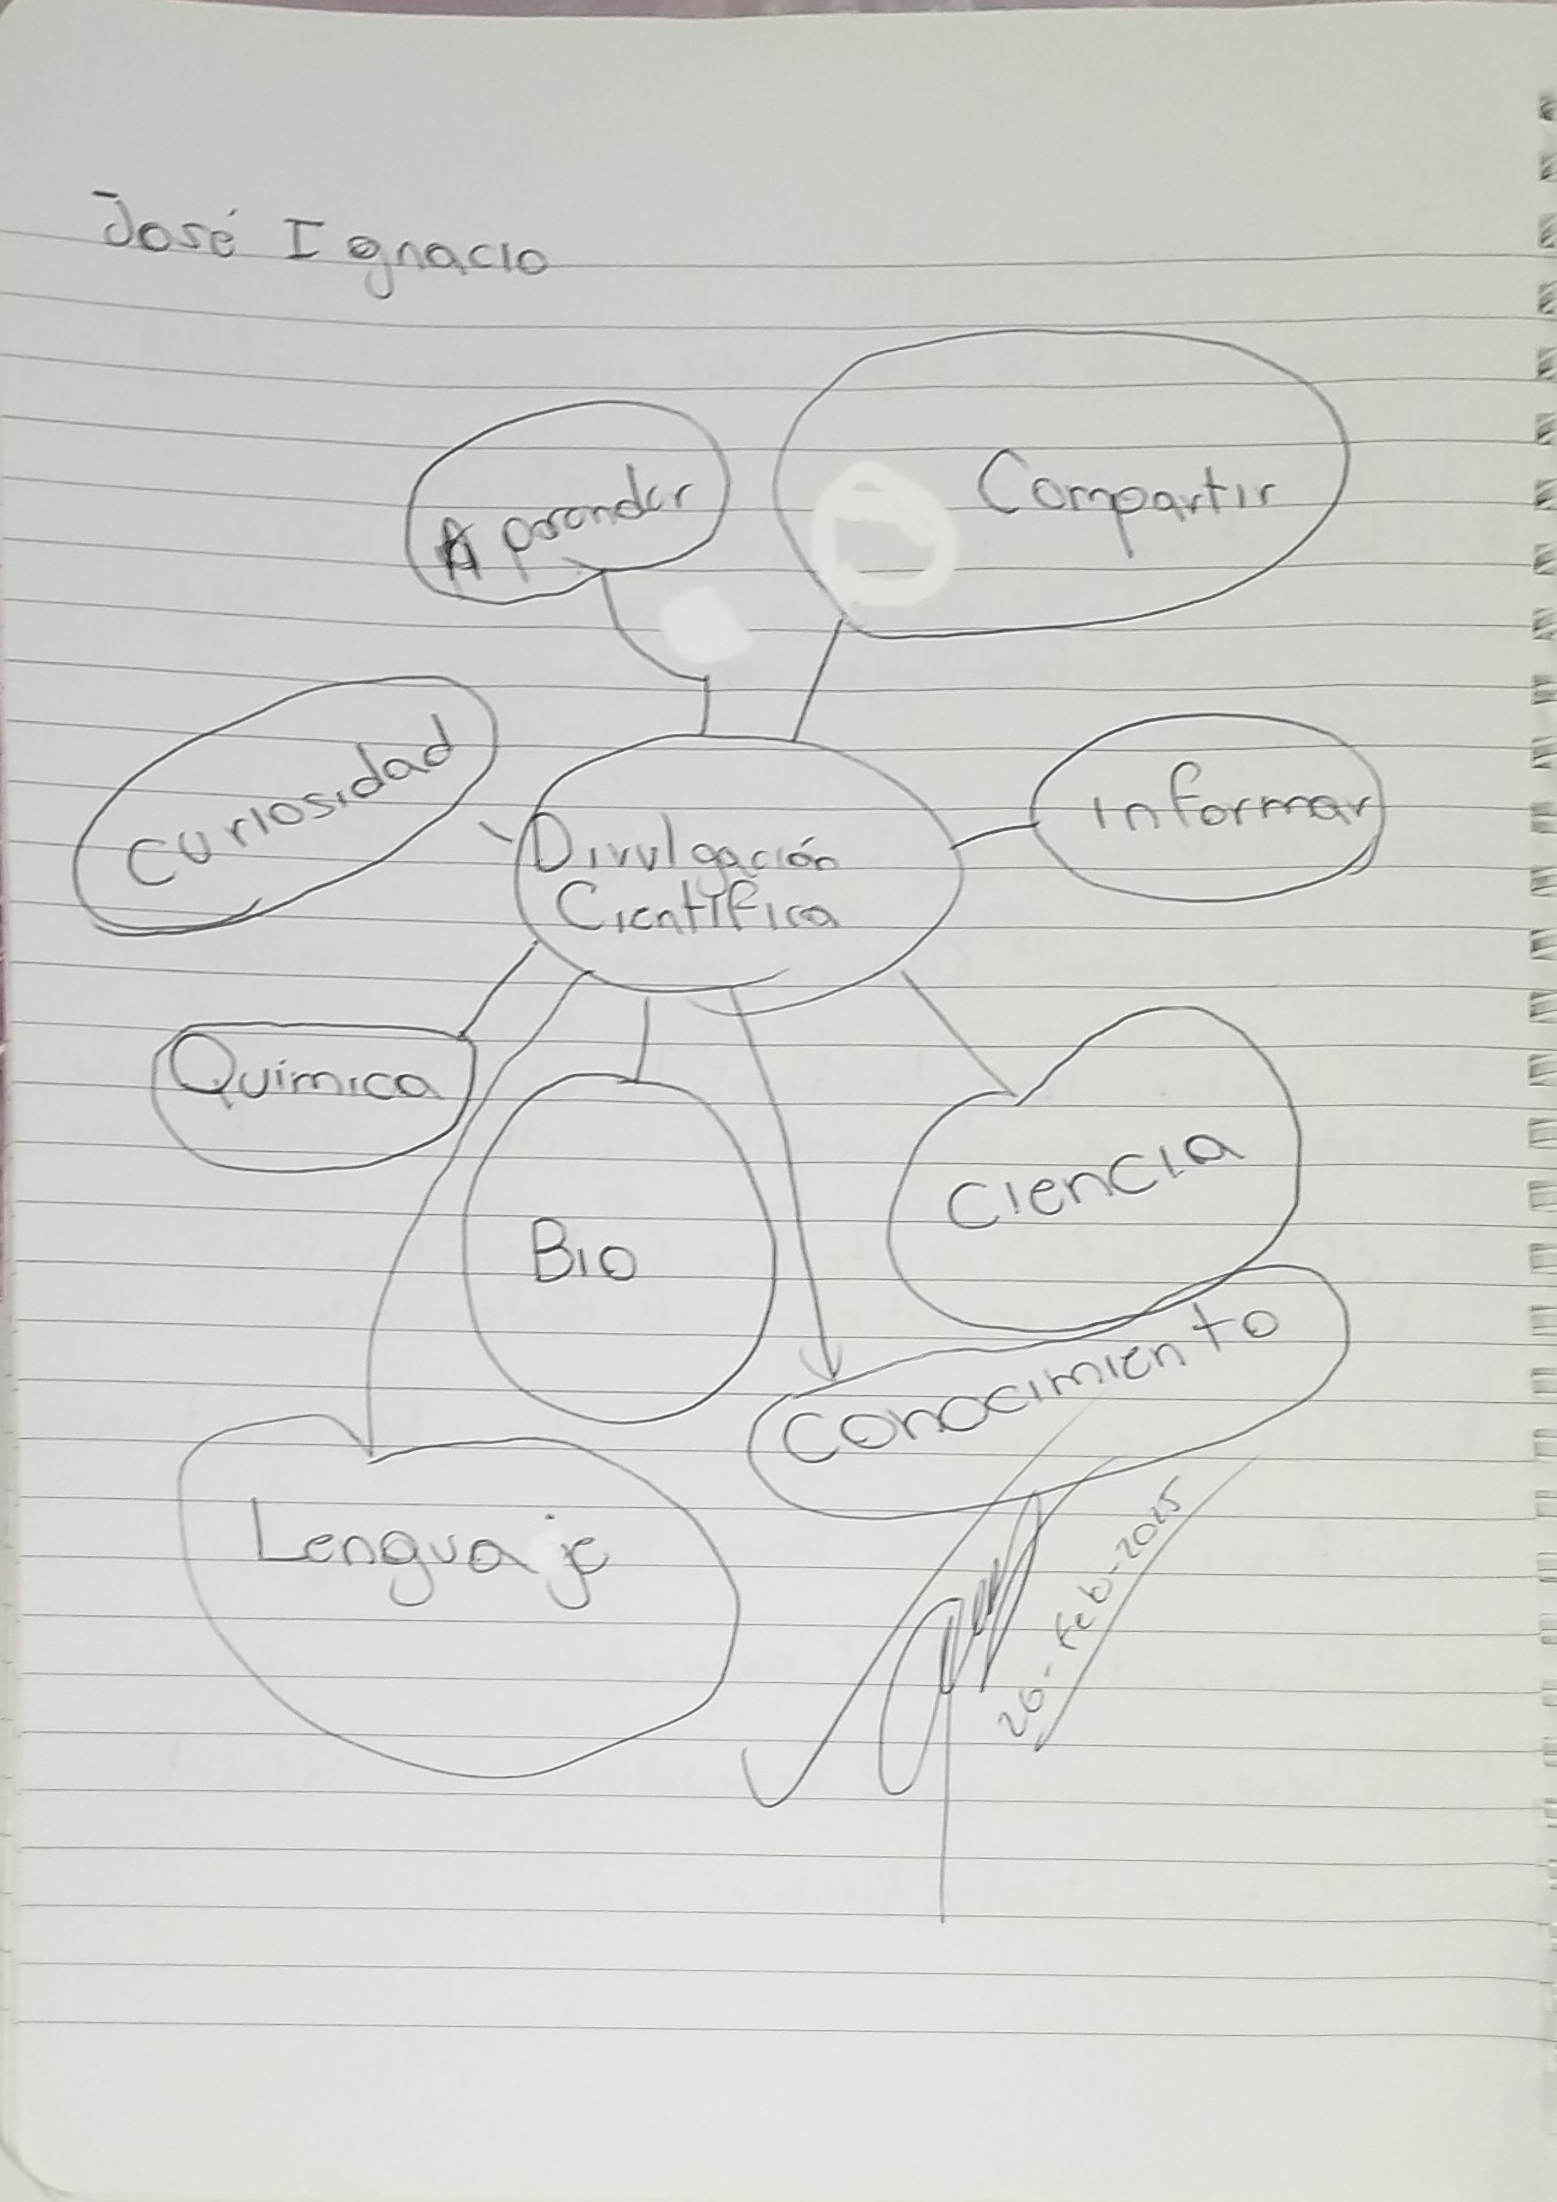 José Ignacio
Aprender
Compartir
Curiosidad
Divulgación
Científica
informar
Química
Bio
Ciencia
Conocimiento
Lenguaje
26-Feb-2025